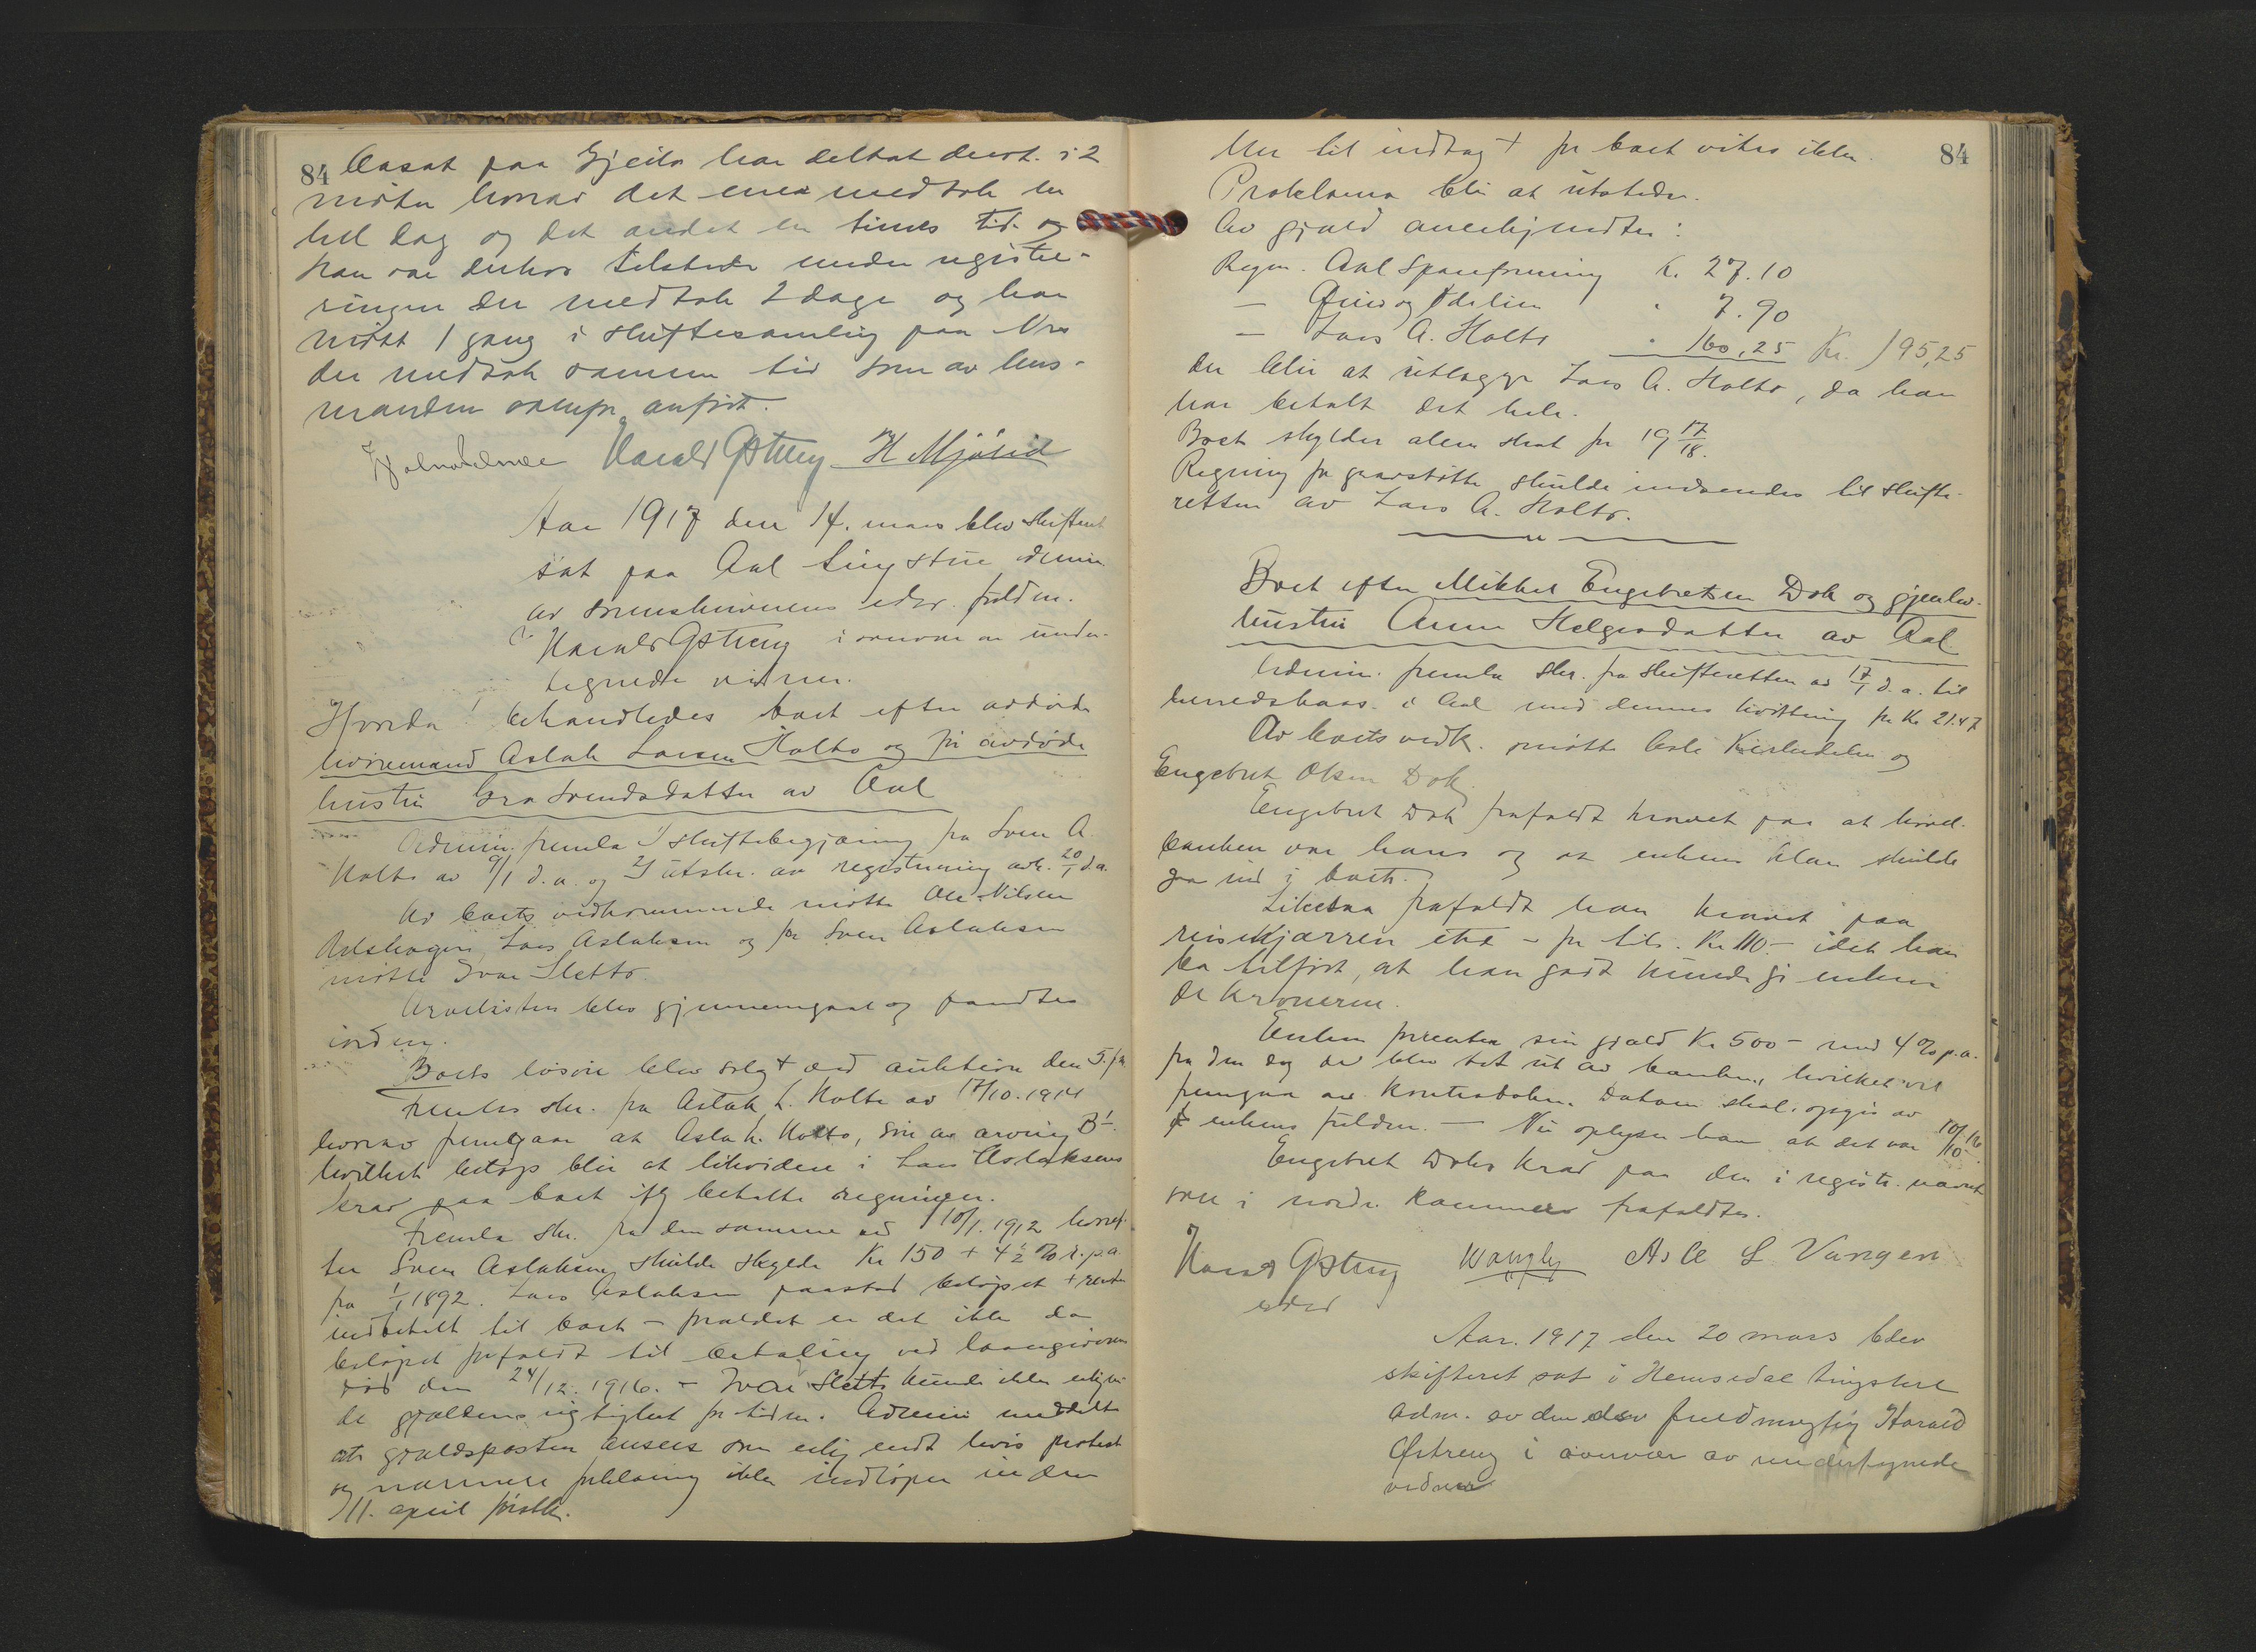 84
Aasat paa Gjeilo har deltat derot. i 2
møter hvorav det ene medtok en
hel dag og det andet en times tid og
han var derhos tilstede under registre-
ringen der medtok 2 dage og har
møtt 1 gang i skiftesamling paa Nes
der medtok samme tid som av hus-
manden ovenfor anført.
Harald Østreng H Mjøsid
Aar 1917 den 14. mars blev skifteret
sat paa Aal tingstue admin.
av sorenskriverens edsv. fuldm.
Harald Østreng i overvær av under-
tegnede vidner.
Hvorda! behandledes boet efter avdøde
livøremand Aslak Larsen Holto og før avdøde
hustru Gro Svendsdatter av Aal
Admin. fremla 1/ skiftebegjæring fra Sven A.
Holto av 9/1 d.a. og 2/ utskr. av registrering avh. 20/1 d.a.
Av boets vedkommende møtte Ole Nilsen
Aslak Larsen og for Sven Aslaksen
møtte Ivar Sletto.
Arvelisten blev gjennemgaat og fandtes
iorden.
Boets løsøre blev solgt ved auktion den 5. fm.
Fremla skr. fra Aslak L. Holto av 17/10.1914
hvorav fremgaar at Aslak Holto, som av arving B!
hvilket beløp blir at likvidere i Lars Aslaksens
krav paa boet iflg betalte regninger.
Fremla skr. fra den samme av 10/1. 1912 hvoref-
ter Sven Aslaksen skulde skylde Kr 150 + 4½ % r. p.a.
fra 1/1 1892. Lars Aslaksen paastod beløpet + renter
indbetalt til boet - foraldet er det ikke da
beløpet forfaldt til betaling ved laangiverens
død den 24/12. 1916. - Ivar Sletto kunde ikke erkjen-
de gjældens rigtighet for tiden. Admin. meddelte
at gjældsposten ansees som erkjendt hvis protest
og nærmere forklaring ikke indløper inden
11. april førstk.
84
Mer til indtægt for boet vites ikke.
Proklama blir at utstede.
Av gjæld anerkjendtes:
Regn. Aal Spareforening K. 27.10
— " 7.90
— Lars A. Holto " 160,25 Kr. 195,25
der blir at utlægge Lars A. Holto, da han
har betalt det hele.
Boet skylder alene skat for 19 17/18.
Regning for gravstøtte skulde indsendes til skifte-
retten av Lars A. Holto.
Boet efter Mikkel Engebretsen Dok og gjenlev.
hustru Anne Helgesdatter av Aal
Admin. fremla skr. fra skifteretten av 17/1 d.a. til
herredskass. i Aal med dennes kvittering for Kr 21.47
Av boets vedk. møtte Asle og
Engebret Olsen Dok.
Engebret Dok frafaldt kravet paa at
var hans og at enkens klær skulde
gaa ind i boet.
Likesaa frafaldt han kravet paa
reisekjærren etc - for tils. Kr 110.- idet han
ba tilført, at han godt kunde gi enken
de kronerne.
Enken forrenter sin gjæld Kr 500 - med 4 % p.a.
fra den dag de blev tat ut av banken, hvilket vil
fremgaa av kontraboken. Datoen skal opgis av
enkens fuldm. — Nu oplyser han at det var 10/10 16.
Engebret Doks krav paa den i registr. nævnte
ovn i nordre kammers frafaldtes.
Harald Østreng Asle L Vangen
edsv
Aar. 1917 den 20 mars blev
skifteret sat i Hemsedal tingsted
adm. av den edsv fuldmægtig Harald
Østreng i overvær av undertegnede
vidner